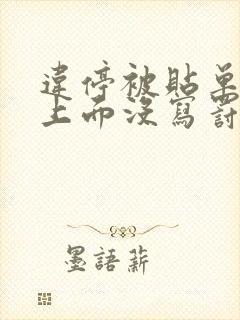 違停被貼單
上面沒寫討
墨語薪